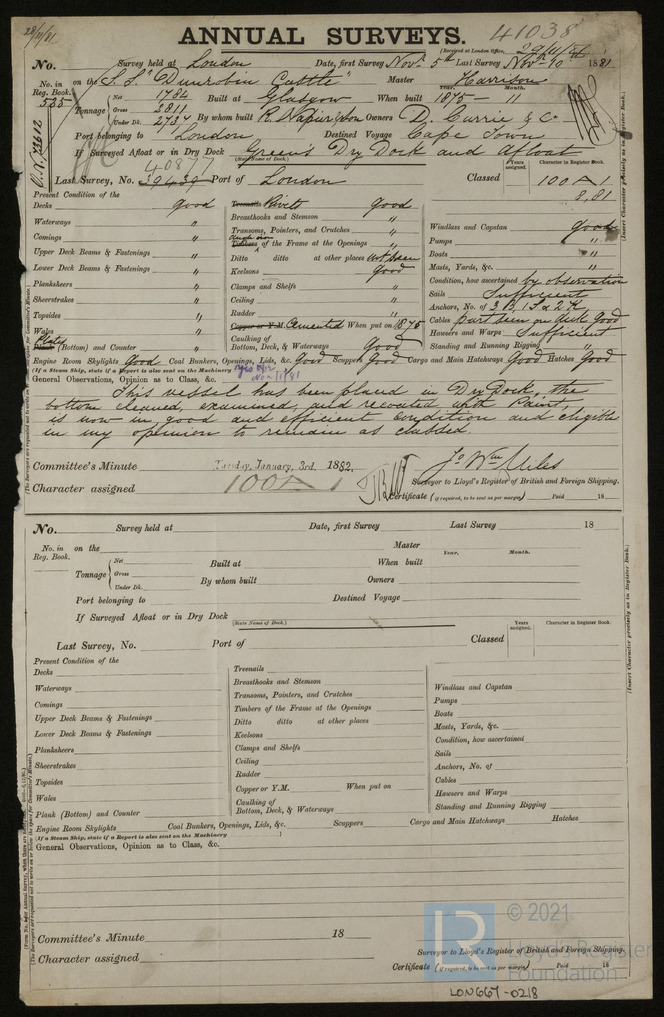 28/11/81
ANNUAL SURVEYS.
41038
(Received at London Office, 29/11/81
No. Survey held at London Date, first Survey Novr. 5th Last Survey Novr. 10th 1881
No. in Reg. Book. on the S.S. "Dunrobin Castle" Master Harrison
535 Tonnage Net 1784 Built at Glasgow When built Year. 1875 Month. 11
Gross 3811
Under Dk. 2734 By whom built R. Napier & Son Owners D. Currie & Co.
Port belonging to London Destined Voyage Cape Town
If Surveyed Afloat or in Dry Dock Green's Dry Dock and Afloat
(State Name of Dock.)
Years assigned. Character in Register Book.
40877
Last Survey, No. 39439 Port of London Classed 100 A 1
8,81
(Insert Character precisely as in Register Book.)
Present Condition of the
Decks good
Waterways "
Comings "
Upper Deck Beams & Fastenings "
Lower Deck Beams & Fastenings "
Planksheers "
Sheerstrakes "
Topsides "
Wales "
Plates (Bottom) and Counter "
Treenails Rivets good
Breasthooks and Stemson "
Transoms, Pointers, and Crutches "
Timbers of the Frame at the Openings "
Ditto ditto at other places not seen
Keelsons good
Clamps and Shelfs "
Ceiling "
Rudder "
Copper or Y.M. Cemented When put on 1875
Caulking of
Bottom, Deck, & Waterways Good
Windlass and Capstan good
Pumps "
Boats "
Masts, Yards, &c. "
Condition, how ascertained by observation
Sails Sufficient
Anchors, No. of 3 B, 1 S & 2 K
Cables part seen on deck Good
Hawsers and Warps Sufficient
Standing and Running Rigging "
Engine Room Skylights Good Coal Bunkers, Openings, Lids, &c. Good Scuppers Good Cargo and Main Hatchways Good Hatches Good
(If a Steam Ship, state if a Report is also sent on the Machinery
General Observations, Opinion as to Class, &c.
This vessel has been placed in Dry Dock, the
bottom cleaned, examined, and recoated with Paint,
is now in good and efficient condition and eligible
in my opinion to remain as classed
Committee's Minute Tuesday, January, 3rd. 1882.
Character assigned 100 A 1
Jo Wm Miles
Surveyor to Lloyd's Register of British and Foreign Shipping.
Certificate (if required, to be sent as per margin) Paid 18
No. Survey held at Date, first Survey Last Survey 18
No. in Reg. Book. on the Master
Tonnage Net Built at When built Year. Month.
Gross
Under Dk. By whom built Owners
Port belonging to Destined Voyage
If Surveyed Afloat or in Dry Dock
(State Name of Dock.)
Years assigned. Character in Register Book.
Last Survey, No. Port of Classed
(Insert Character precisely as in Register Book.)
Present Condition of the
Decks
Waterways
Comings
Upper Deck Beams & Fastenings
Lower Deck Beams & Fastenings
Planksheers
Sheerstrakes
Topsides
Wales
Plank (Bottom) and Counter
Treenails
Breasthooks and Stemson
Transoms, Pointers, and Crutches
Timbers of the Frame at the Openings
Ditto ditto at other places
Keelsons
Clamps and Shelfs
Ceiling
Rudder
Copper or Y.M. When put on
Caulking of
Bottom, Deck, & Waterways
Windlass and Capstan
Pumps
Boats
Masts, Yards, &c.
Condition, how ascertained
Sails
Anchors, No. of
Cables
Hawsers and Warps
Standing and Running Rigging
Engine Room Skylights Coal Bunkers, Openings, Lids, &c. Scuppers Cargo and Main Hatchways Hatches
(If a Steam Ship, state if a Report is also sent on the Machinery
General Observations, Opinion as to Class, &c.
Committee's Minute 18
Character assigned
Surveyor to Lloyd's Register of British and Foreign Shipping.
Certificate (if required, to be sent as per margin) Paid 18
© 2021
Lloyd's Register
Foundation
LR
LON667-0218